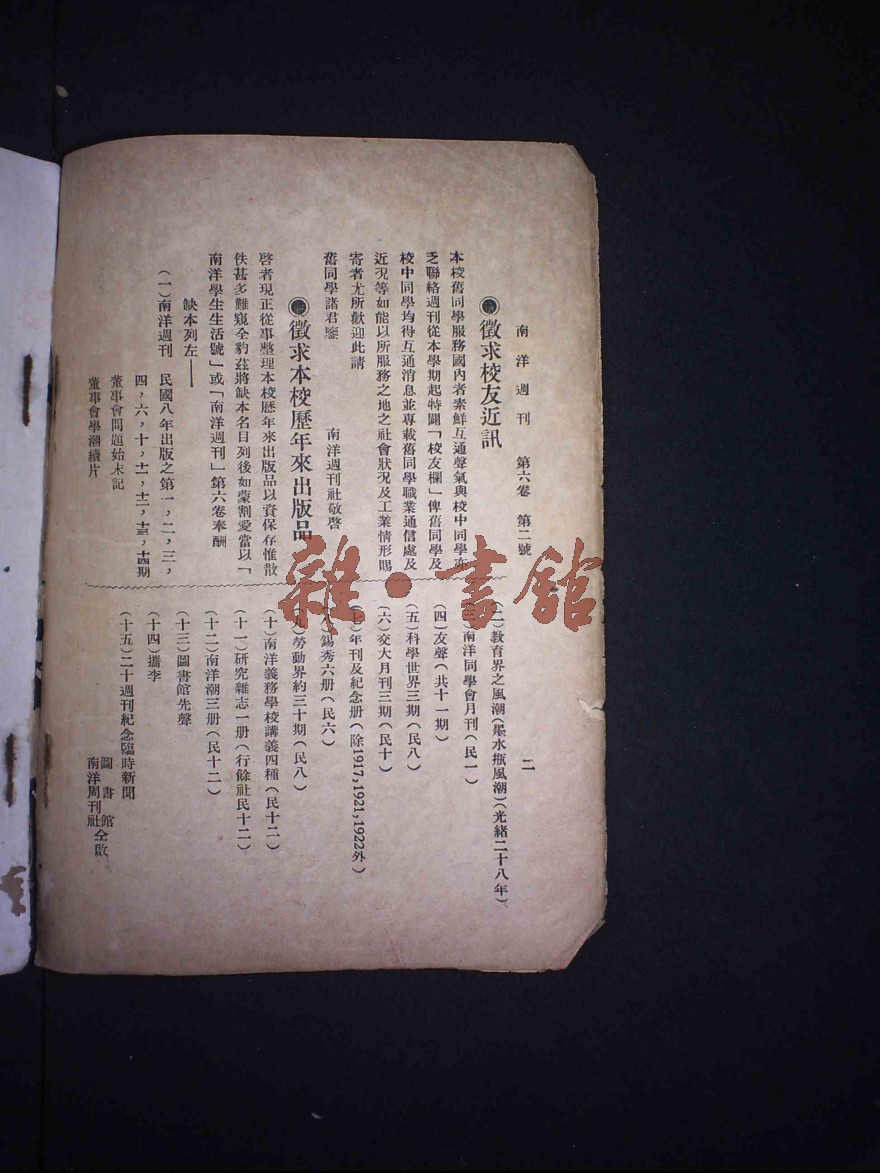 南洋週刊 第六卷 第二號
二
徵求校友近訊
本校舊同學服務國內者素鮮互通聲氣與校中同學亦
乏聯絡週刊從本學期起特闢「校友欄」俾舊同學及
校中同學均得互通消息並專載舊同學職業通信處及
近況等如能以所服務之地之社會狀況及工業情形賜
寄者尤所歡迎此請
舊同學諸君鑒 南洋週刊社敬啓
徵求本校歷年來出版品
啓者現正從事整理本校歷年來出版品以資保存惟散
佚甚多難窺全豹茲將缺本名目列後如蒙割愛當以「
南洋學生生活號」或「南洋週刊」第六卷奉酬
缺本列左——
(一)南洋週刊 民國八年出版之第一,二,三,
四,六,十,十一,十二,十三,十四期
董事會問題始末記
董事會學潮續片
(二)教育界之風潮(墨水瓶風潮)(光緒二十八年)
(三)南洋同學會月刊(民一)
(四)友聲(共十一期)
(五)科學世界三期(民八)
(六)交大月刊三期(民十)
(七)年刊及紀念册(除1917,1921,1922外)
錫秀六册(民六)
(九)勞動界約三十期(民八)
(十)南洋義務學校講義四種(民十二)
(十一)研究雜志一册(行餘社民十二)
(十二)南洋潮三册(民十二)
(十三)圖書館先聲
(十四)攜李
(十五)二十週刊紀念臨時新聞
圖書館
南洋周刊社仝啟
雜·書館